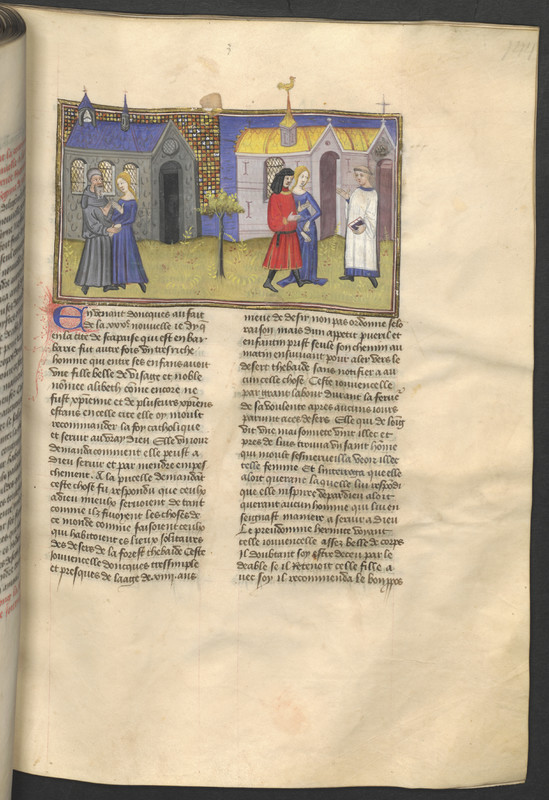 En venant doncques au fait
de sa nouvelle ie dy q
en la cite de Scapuse qui est en bar
barie fut autre fois vn tresriche
homme qui entre ses enfans auoit
vne fille belle de visage et noble
nommee alibeth comme encore ne
fust xpienne et de plusieurs xpiens
estans en celle cite elle oy moult
recommander la foy catholique
et seruir au vray dieu Elle vn iour
demanda comment elle peust a
dieu seruir et par mendre empes
chement A la pucelle demandant
ceste chose fu respondu que ceulx
a dieu mieulx seruoient de tant
comme ilz fuyoient les choses de
ce monde comme faisoient ceulx
qui habitoient es lieux solitaires
des desers de la forest thebaide Ceste
iouuencelle doncques tressimple
et presques de laage de ans
meue de desir non pas ordonne selo
raison mais dun appetit pueril et
enfantin prist seule son chemin au
matin ensuiuant pour aler vers le
desert thebaide sans notifier a au
cun celle chose Ceste iouuencelle
par grant labour durant la ferue
de sa voulente apres aucuns iours
paruint aces desers Elle qui de loing
vit vne maisonnete vint illec et
pres de luis trouua vn saint home
qui moult sesmerueilla veoir illec
celle femme Et linterroga que elle
aloit querant laquelle lui respodi
que elle inspiree depar dieu aloit
querant aucun homme qui luy en
seignast maniere a seruir a dieu
Le preudomme hermite voyant
celle iouuencelle assez belle de corps
il doubtant soy estre deceu par le
deable se il retenoit celle fille a
uec soy il recommanda le bon ppos